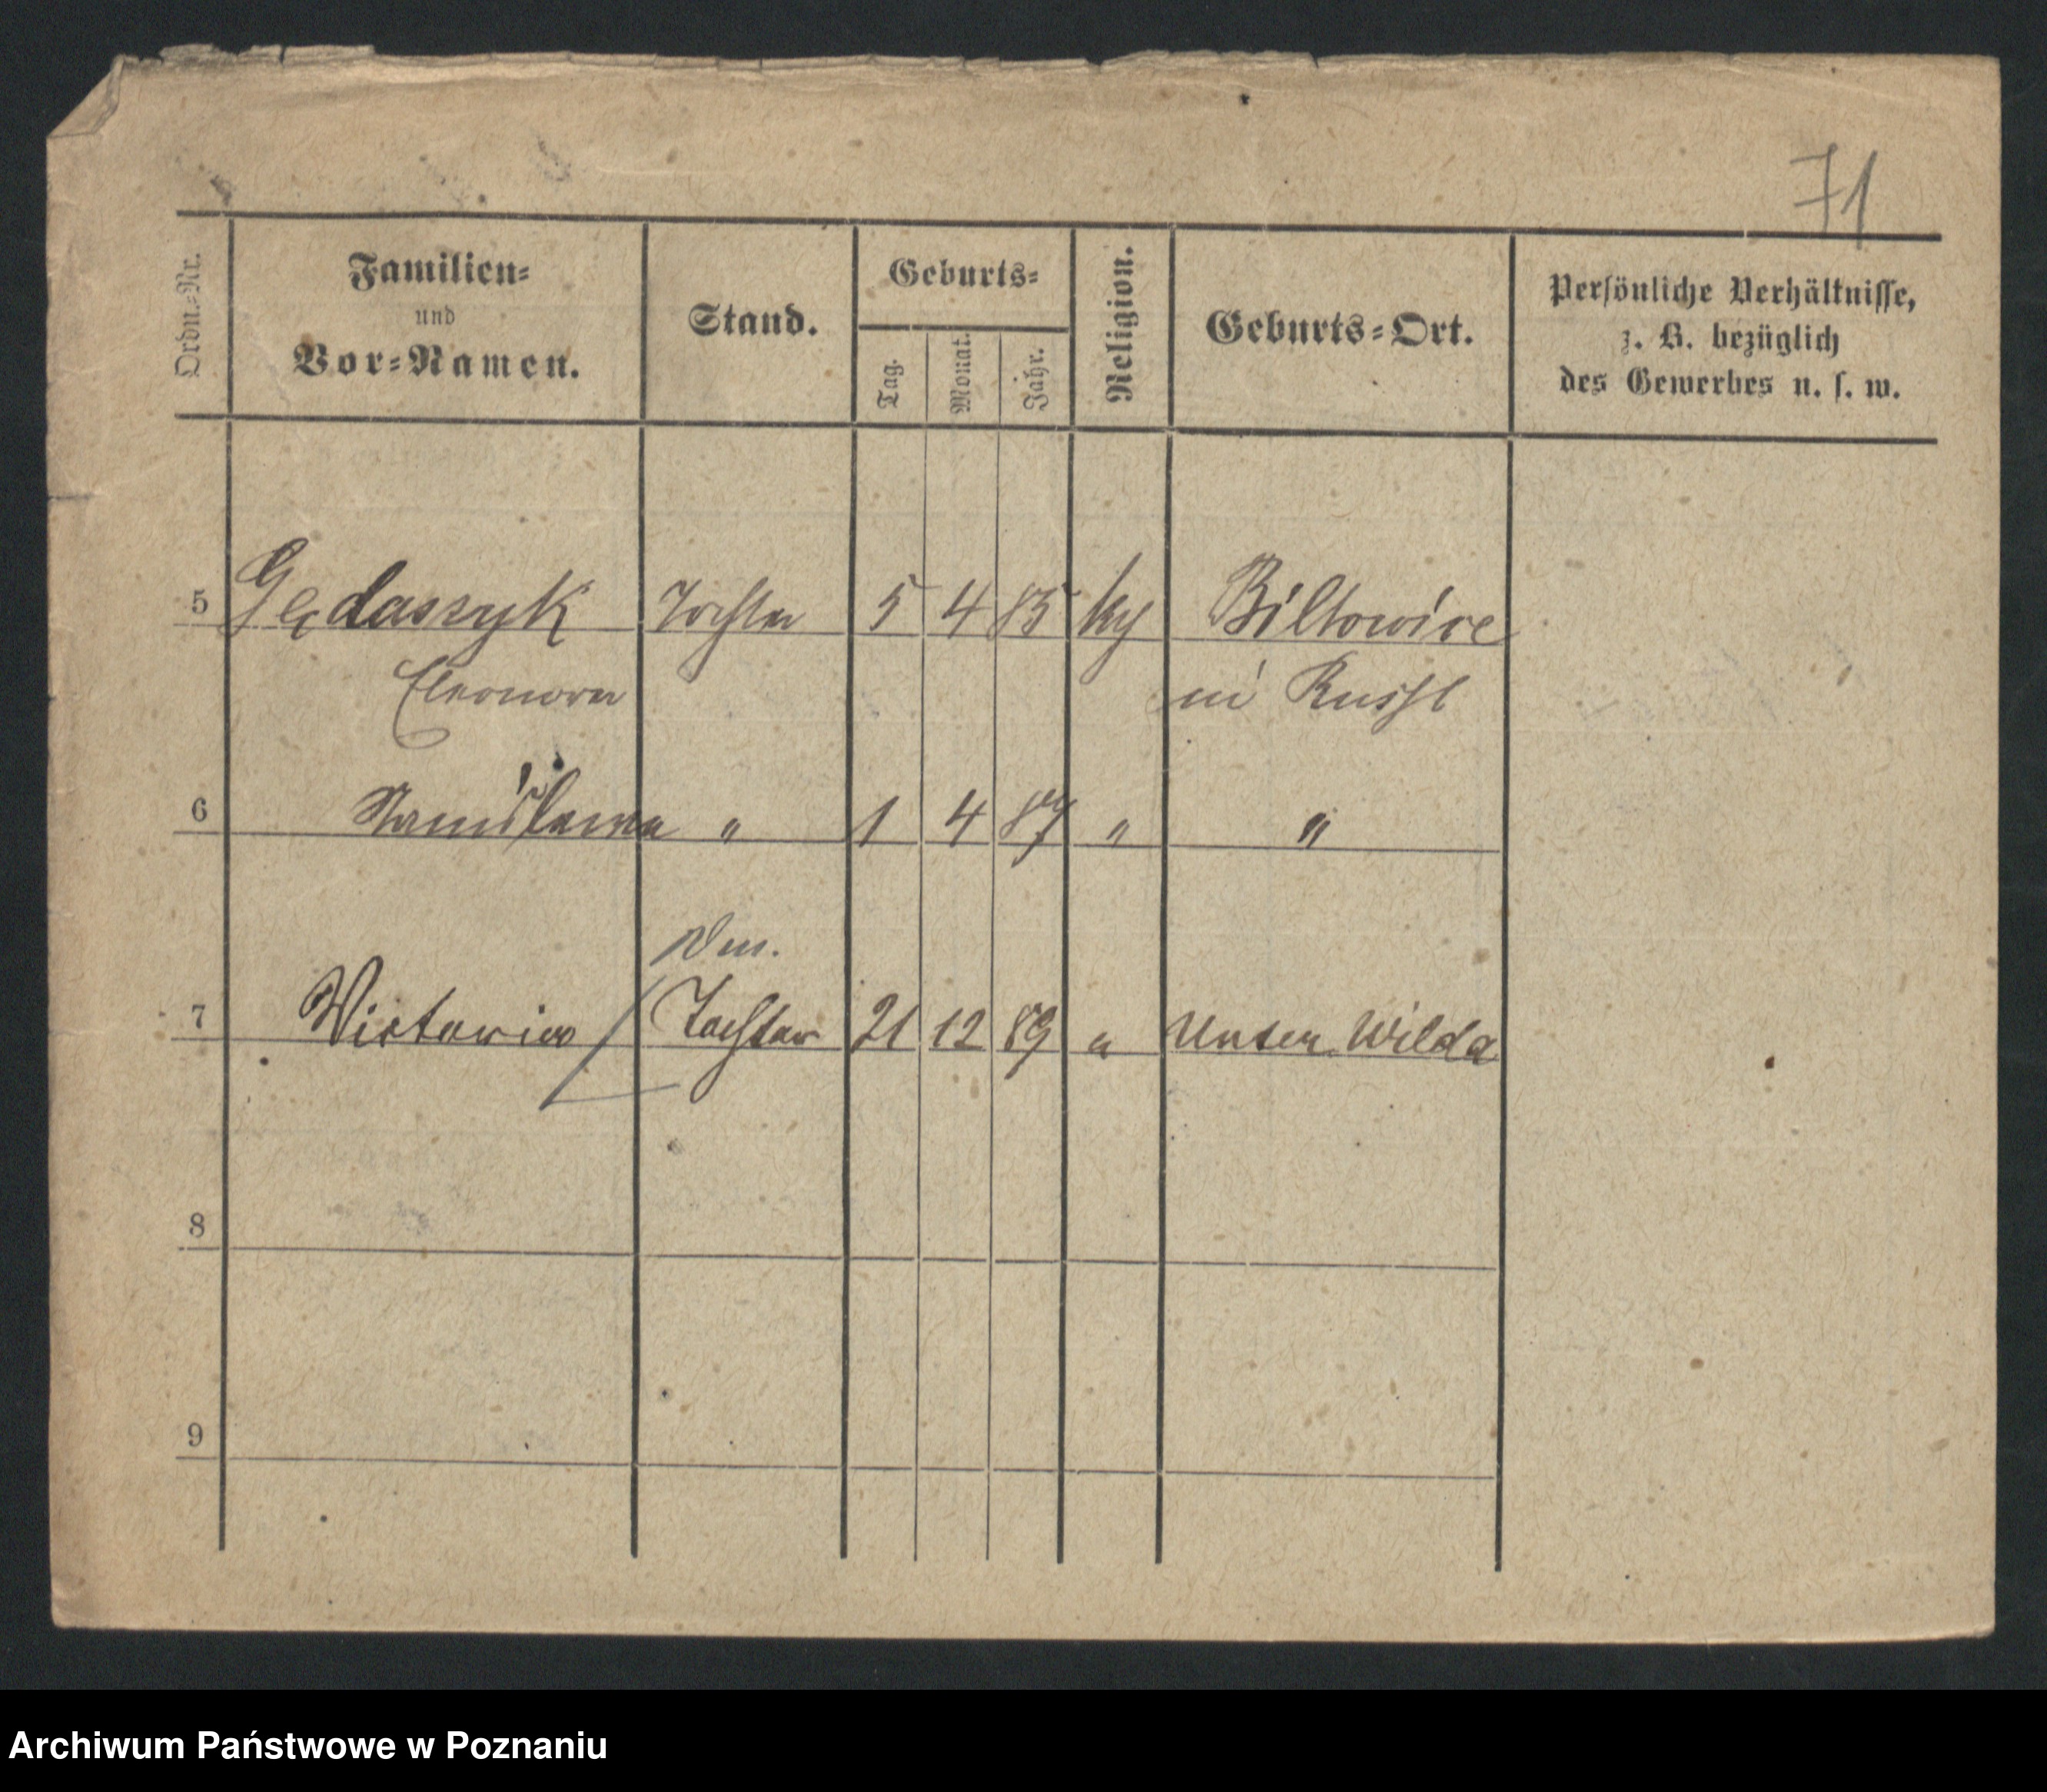 71
Ordn.=Nr. Familien= und Vor=Namen. Stand. Geburts= Tag. Monat. Jahr. Religion. Geburts=Ort. Persönliche Verhältnisse, z. B. bezüglich des Gewerbes u. s. w.
5 Gędaszyk Tochter 5 4 85 Biltowice
Eleonora in Russl
6 Stanisława " 1 4 87 " "
7 Victoria Tochter 21 12 89 " Unter Wilda
8
9
Archiwum Państwowe w Poznaniu